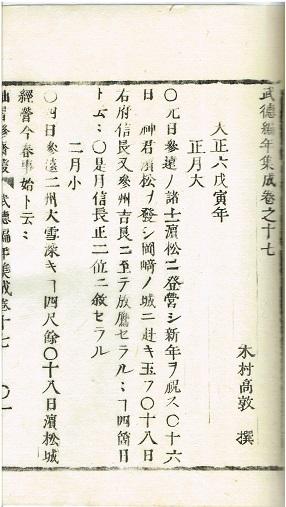 武德編年集成卷之十七
木村高敦 撰
天正六戊寅年
正月大
〇元日參遠ノ諸士濱松ニ登營シ新年ヲ祝ス〇十六
日 神君濱松ヲ發シ岡﨑ノ城ニ赴キ玉フ〇十八日
右府信長又參州吉良ニ至テ放鷹セラルヽヿ四箇日
ト云々〇是月信長正二位ニ敘セラル
二月小
〇四日參遠二州大雪深キヿ四尺餘〇十八日濱松城
經營今春事始ト云々
武德編年集成卷十七 〇一